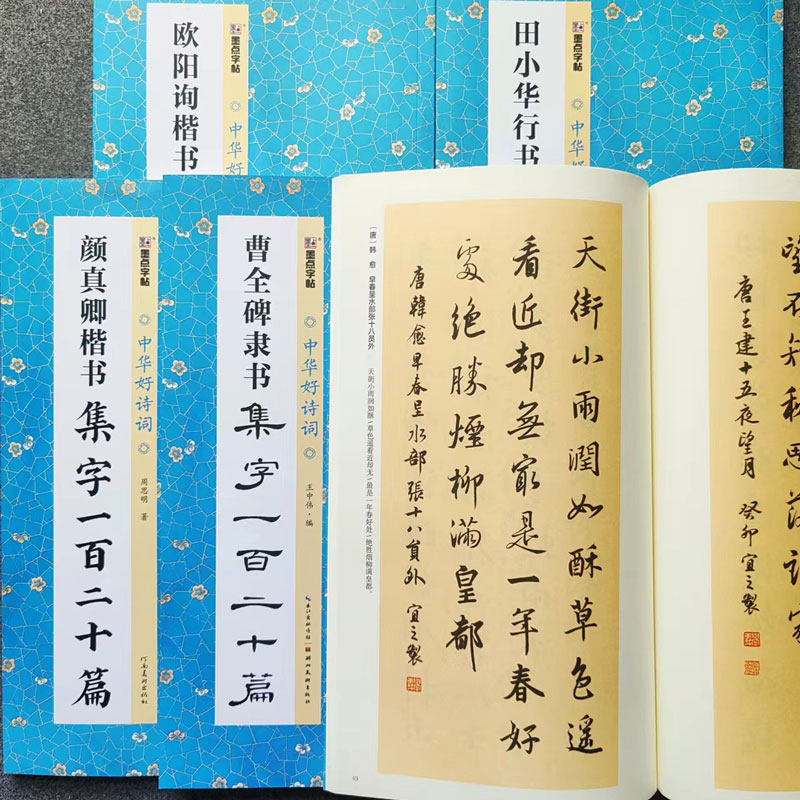 墨点字帖
欧阳询楷书
中华好
墨点字帖
田小华行书
中华好
墨点字帖
颜真卿楷书集字一百二十篇
中华好诗词
周思明 著
河南美术出版社
墨点字帖
曹全碑隶书集字一百二十篇
中华好诗词
王中伟·编
长江出版传媒
湖北美术出版社
（唐）韩 愈 早春呈水部张十八员外
天街小雨润如酥/草色遥看近却无/最是一年春好处/绝胜烟柳满皇都。
天街小雨潤如酥草色遥
看近却無冣是一年春好
處絶勝煙柳滿皇都
唐韓愈早春呈水部張十八員外 宜之製
望不知秋思落誰家
唐王建十五夜望月 癸卯 宜之製